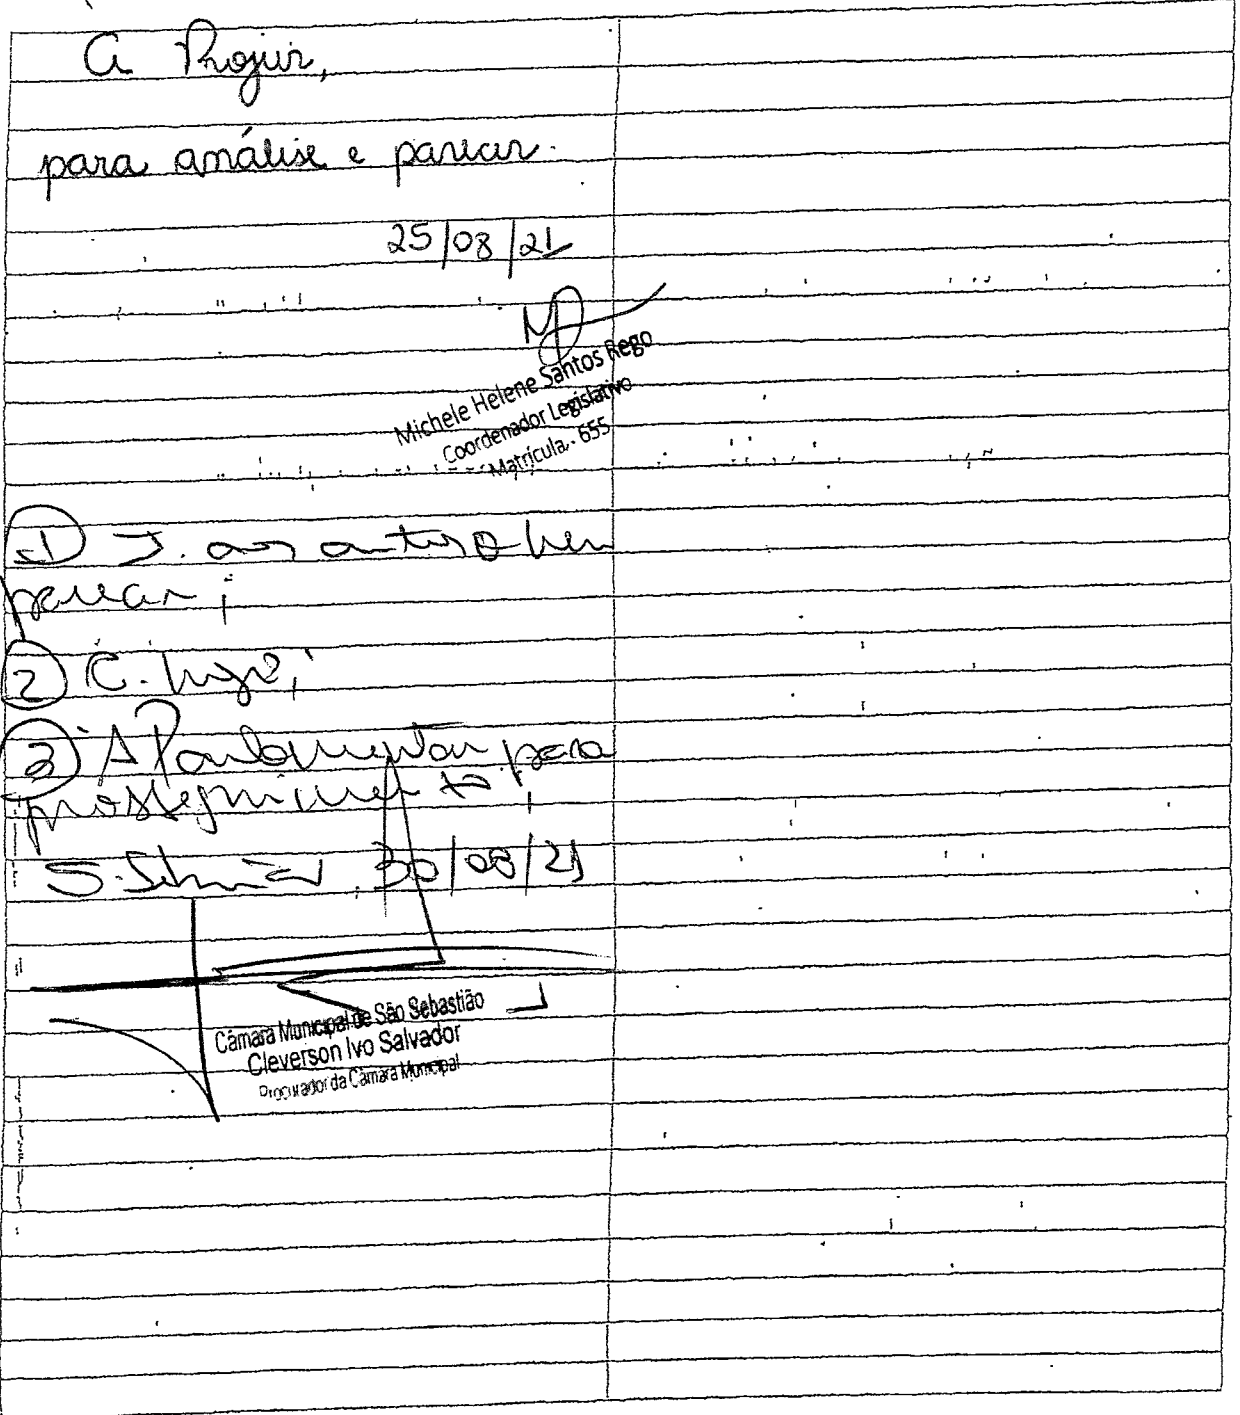 A Projur,
para análise e parecer.
25/08/21
Michele Helene Santos Rego
Coordenador Legislativo
Matrícula - 655
1) J. aos autos o
parecer;
2) C.
3) À Parlamentar para
prosseguimento;
S. Sebastião, 30/08/21
Câmara Municipal de São Sebastião
Cleverson Ivo Salvador
Procurador da Câmara Municipal